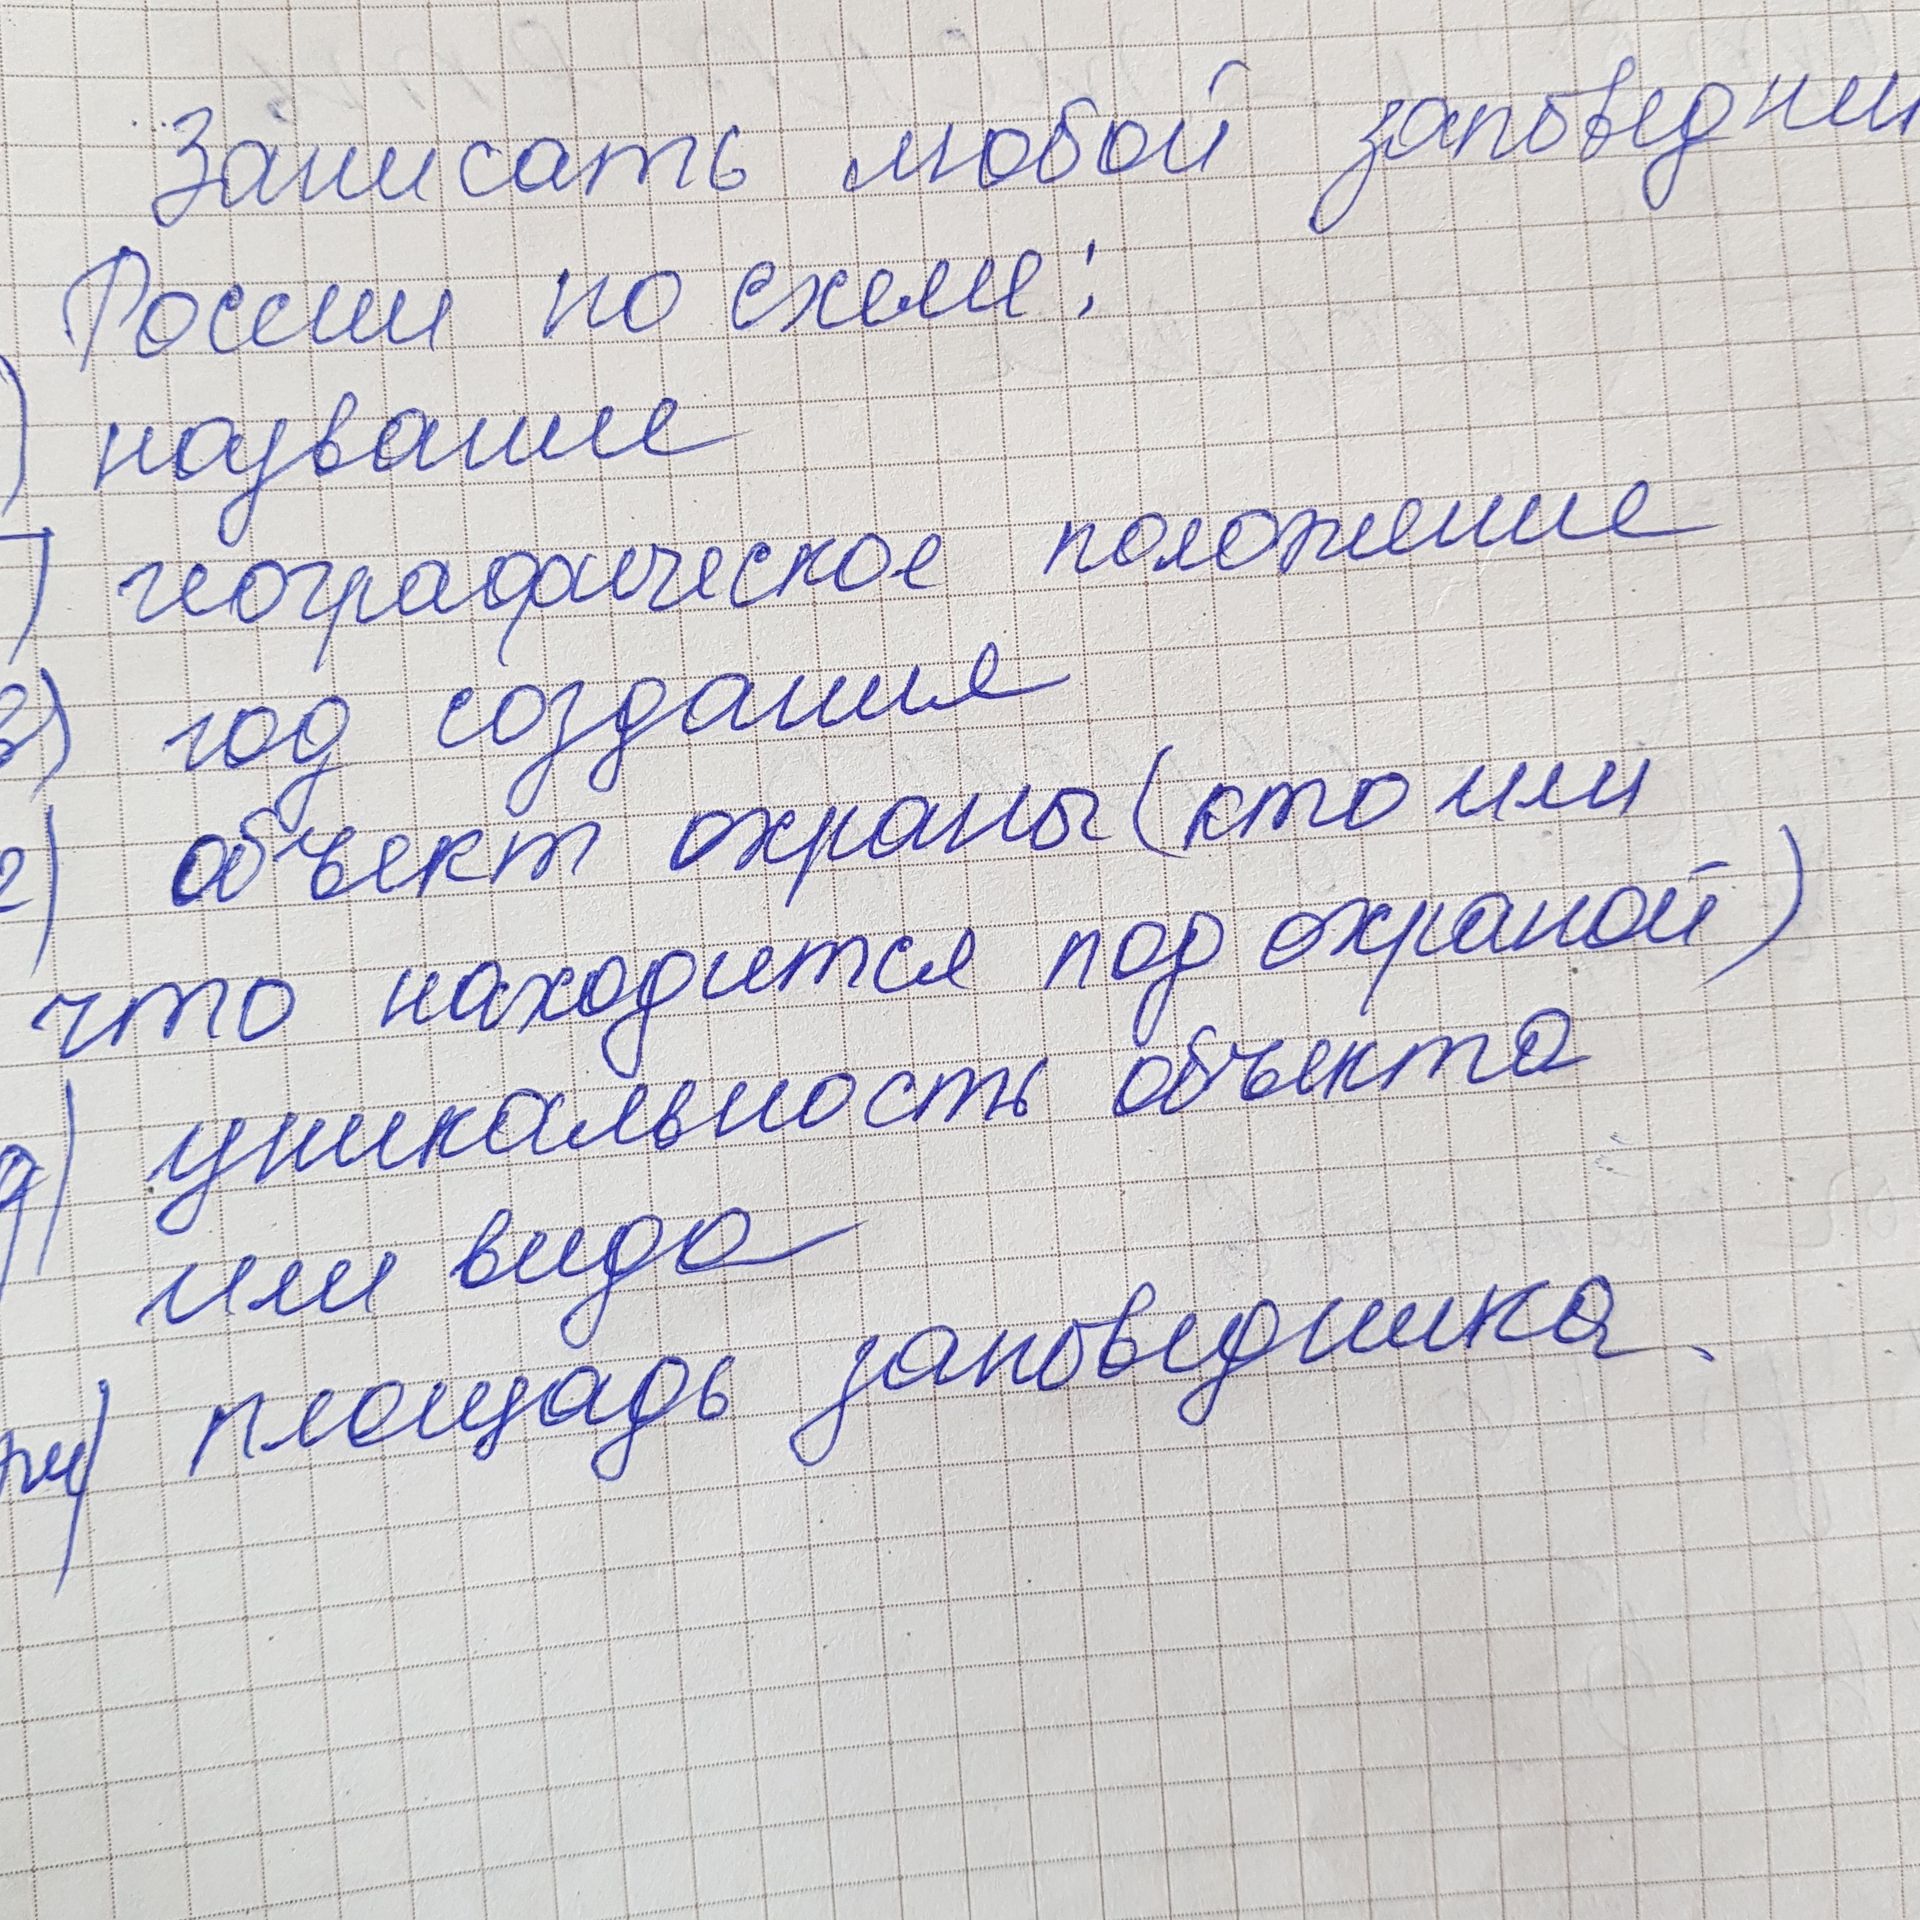 Записать любой заповедник
России по схеме:
) название
) географическое положение
в) год создания
г) объект охраны (кто или
что находится под охраной)
д) уникальность объекта
или вида
ж) площадь заповедника.